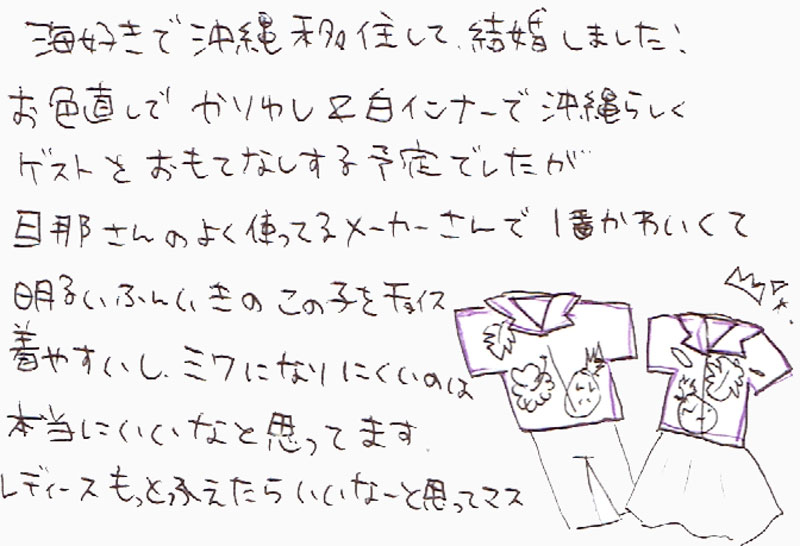 海好きで沖縄移住して、結婚しました!
お色直しで かりゆし&白インナーで沖縄らしく
ゲストとおもてなしする予定でしたが
旦那さんのよく使ってるメーカーさんで1番かわいくて
明るいふんいきのこの子をチョイス
着やすいし、ミワになりにくいのは
本当にいいなと思ってます。
レディースもっとふえたらいいなーと思ってマス